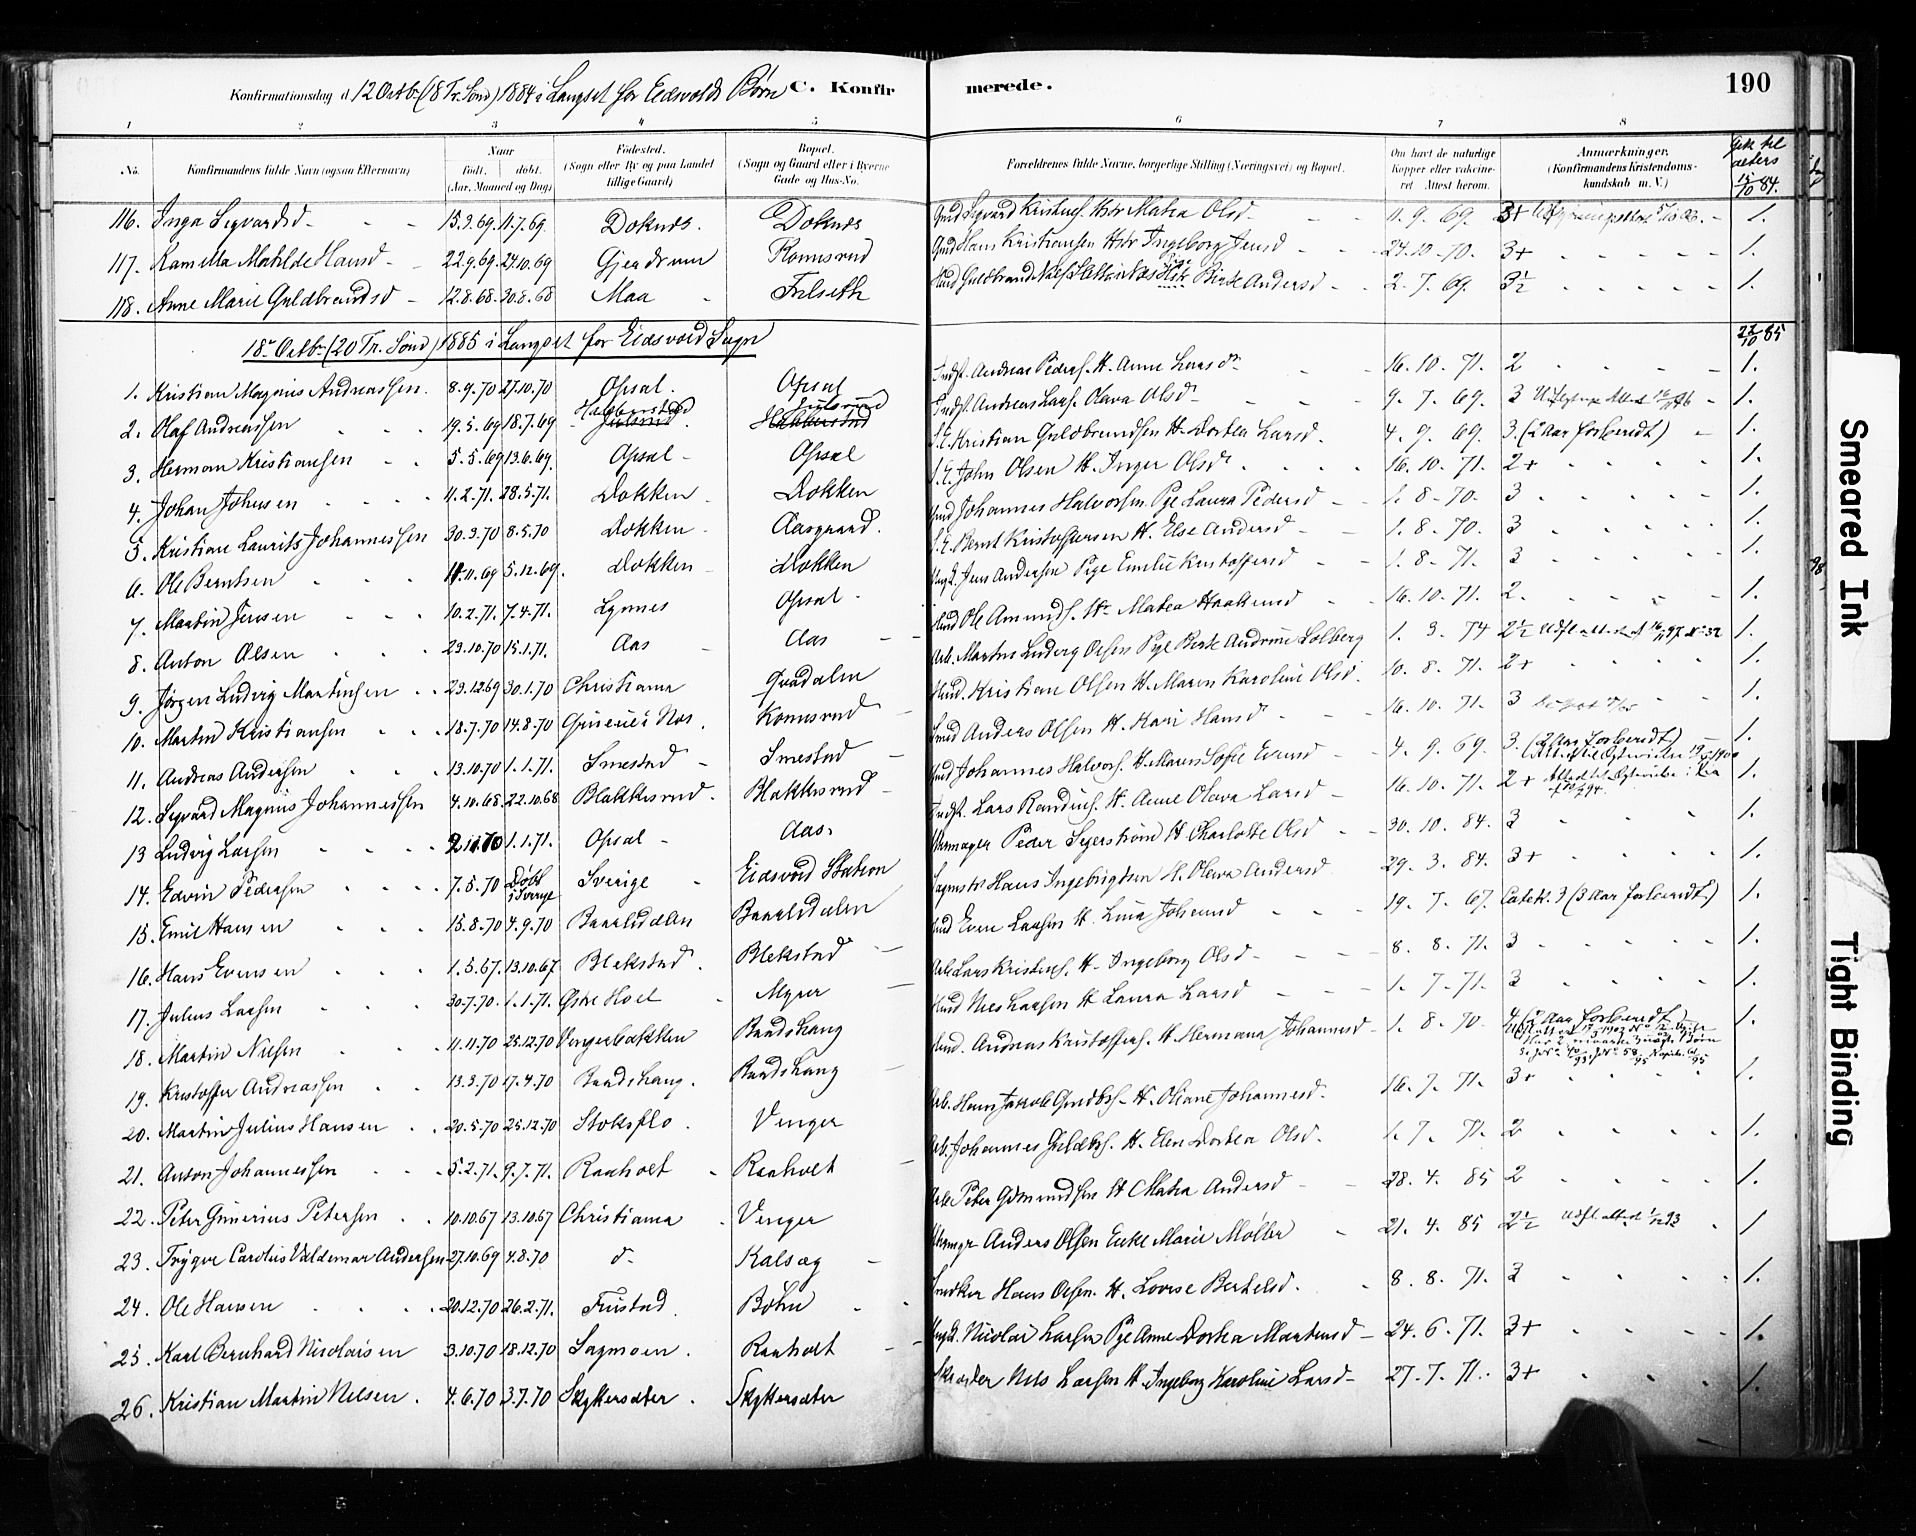 Konfirmationsdag d 12 Octb (18 Tr. Sønd) 1884 i Langset for Eidsvolds Børn C. Konfirmerede. 190
1 2 3 4 5 6 7 8
No. Konfirmandens fulde Navn (ogsaa Efternavn) Naar født. døbt. (Aar, Maaned og Dag) Fødested. (Sogn eller By og paa Landet tillige Gaard) Bopæl. (Sogn og Gaard eller i Byerne Gade og Hus-No. Forældrenes fulde Navne, borgerlige Stilling (Næringsvei) og Bopæl. Om havt de naturlige Kopper eller vaccineret. Attest herom. Anmærkninger. (Konfirmandens Kristendomskundskab m. V.) Gik til alters 15/10 84.
116. Inga Sigvardsd - - 15.3.69 11.7.69 Doknes. Doknes Gmd Sigvard Kristens. Hstr Mathea Olsd - - 11. 9. 69. 3+ 1.
117. Kamella Mathilde Hansd - 22.9.69 24.10.69 Gjerdrum Komsrud Gmd Hans Kristiansen Hstr Ingeborg Jensd - - 24. 10. 70. 3+ 1.
118. Anne Marie Guldbrandsd - 12.8.68 30.8.68 Maa Filseth Guldbrand Birte Andersd - - 2. 7. 69. 3½ 1.
18de Octb (20 Tr. Sønd) 1885 i Langset for Eidsvold Sogn 22/10 85
1. Kristian Magnus Andreassen. 8.9.70 27.10.70 Opsal. Opsal Indst. Andreas Peders. H. Anne Larsdr 16. 10. 71. 2 1.
2. Olaf Andreassen 19.5.69 18.7.69 Habberstad Julsrud Julsrud Habberstad Indst. Andreas Lars. Olava Olsd 9. 7. 69. 3 1.
3. Herman Kristiansen 5.5.69 13.6.69. Opsal Opsal S.E. Kristian Guldbrandsen H. Dortea Larsd. 4. 9. 69. 3. (2 Aar forberedt) 1.
4. Johan Johnsen 11.2.71. 28.5.71. Dokken Dokken S.E. John Olsen H. Inger Olsdr 16. 10. 71. 2+ 1.
5. Kristian Laurits Johannessen 30.3.70 8.5.70 Dokken Aasgaard. Johannes Halvorsen Pge Laura Pedersd 1. 8. 70. 3 1.
6. Ole Berntsen 11.11.69 5.12.69. Dokken Dokken S.E. Bernt Kristoffersen H. Else Andersd 1. 8. 70. 3 1.
7. Martin Jensen 10.2.71. 7.4.71. Lynnes Opsal Ungk. Jens Andersen Pige Emilie Kristoffersd 1. 8. 71. 3 1.
8. Anton Olsen 29.10.70 15.1.71. Aas Aas Hmd Ole Amunds. H. Mathea Haakensd 16. 10. 71. 2. 1.
9. Jørgen Ludvig Martinsen 29.12.69 30.1.70 Christiania Qvadalen Arb. Martin Ludvig Olsen Pge Berte Andrine Solberg 1. 3. 74 2½ 1.
10. Martin Kristiansen 18.7.70 14.8.70 Komsrud Hmd. Kristian Olsen H. Maren Karoline Olsd. 10. 8. 71. 2+ 1.
11. Andreas Andersen 13.10.70 1.1.71. Smestad Smestad Smed Anders Olsen H. Kari Hansd 16. 10. 71. 3 1.
12. Sigvard Magnus Johannessen 4.10.68 22.10.68 Blakkesrud. Blakkesrud Hmd Johannes Halvors. H. Maren Sofie Evensd 4. 9. 69. 3. (2 Aar forberedt) 1.
13 Ludvig Larsen 1.1.71. Opsal Aas Indst. Lars H. Anne Olava Larsd 16. 10. 71. 2+ 1.
14. Edvin Pedersen 7.5.70 Døbt i Sverige Sverige Eidsvold Station Uhrmager Peder Segerstrøm H. Charlotte Olsd 30. 10. 84. 3 1.
15. Emil Hansen 15.8.70 4.9.70 Baarlidalen Baarlidalen Hans Ingebrigtsen H. Olava Andersd 29. 3. 84. 3+ 1.
16. Hans Evensen 1.5.67. 13.10.67 Blekstad Blekstad Hmd Even Larsen H. Lina Johansd 19. 7. 67. Catek. 3 (3 Aar forberedt.) 1.
17. Julius Larsen 30.7.70. 1.1.71. Østre Hoel Myrer Arb Lars Kristens. H. Ingeborg Olsd 8. 8. 71. 3 1.
18. Martin Nilsen 11.11.70 25.12.70 Vengerbakken Baadshaug Hmd Niels Larsen H Laura Larsd 1. 7. 71. 3 1.
19. Kristoffer Andreassen 13.3.70 17.4.70 Baadshaug. Baadshaug Hmd. Andreas Kristoffers. H. Hermana Johannesd 1. 8. 70. 4 (2 Aar forberedt) 1.
20. Martin Julius Hansen 20.5.70 25.12.70 Stoksflo Venger Arb. Hans Jakob Guldbs. H. Oliane Johannesd. 16. 7. 71. 3+ 1.
21. Anton Johannessen 5.2.71. 9.7.71. Raaholt Raaholt Arb. Johannes Guldbs. H. Elen Dortea Olsd. 1. 7. 71. 2 1.
22. Peter Gunerius Petersen 10.10.67 13.10.67 Christiania Venger Arb Peter Gomundsen H Mathea Andersd 28. 4. 85 2 1.
23. Trygve Carolus Valdemar Andersen 27.10.69 4.8.70 d Kalsæg Anders Olsen Enke Marie Møller 21. 4. 85 2½ Udfl. attest 1/12 93 1
24. Ole Hansen 20.12.70 26.2.71. Finstad Bøhn Snedker Hans Olsen H. Lovise Bertelsd. 8. 8. 71. 3 1.
25. Karl Bernhard Nicolaisen 3.10.70 18.12.70 Sagmoen. Raaholt Ungk. Nicolai Larsen Pge Anne Dortea Martinsd 24. 6. 71. 3+ 1.
26. Kristian Martin Nilsen. 4.6.70 3.7.70 Skyttersæter Skyttersæter Skræder Nils Larsen H. Ingeborg Karoline Larsd 27. 7. 71. 3+ 1.
Smeared Ink
Tight Binding